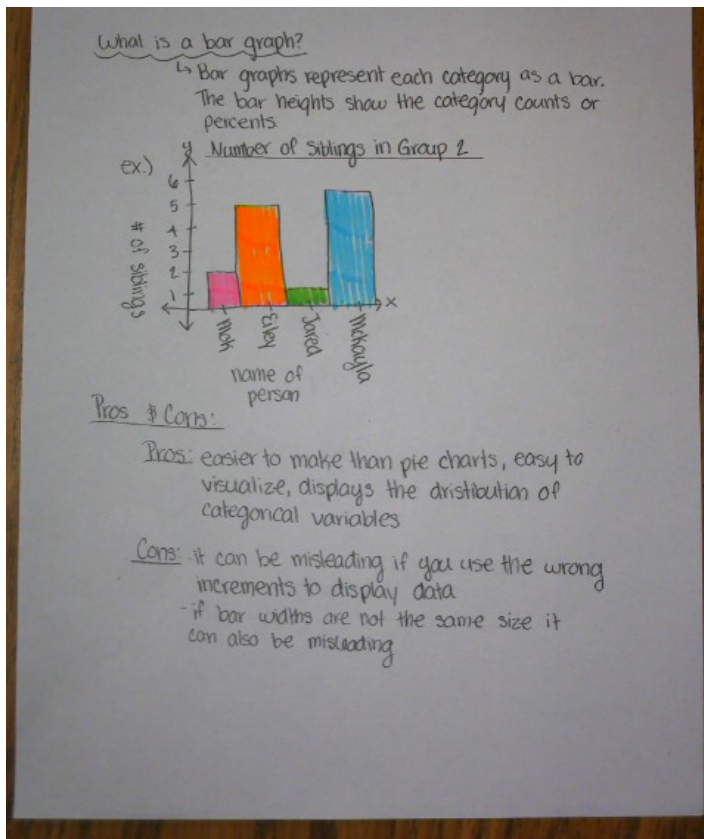 What is a bar graph?
↳ Bar graphs represent each category as a bar.
The bar heights show the category counts or
percents
y Number of Siblings in Group 2
ex.)
6
5
4
3
2
1
# of siblings
x
Eiley
Jared
McKayla
name of
person
Pros & Cons:
Pros: easier to make than pie charts, easy to
visualize, displays the dristibution of
categorical variables
Cons: - it can be misleading if you use the wrong
increments to display data
- if bar widths are not the same size it
can also be misleading